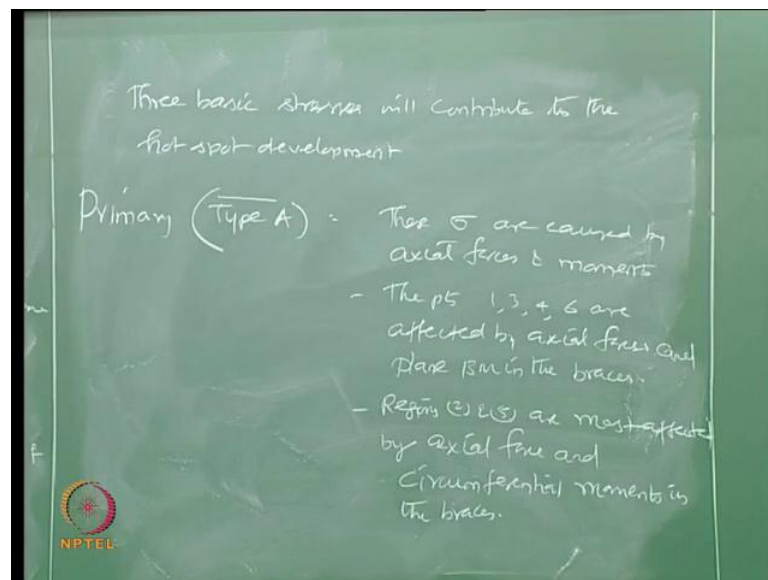 Three basic stresses will contribute to the
hot spot development
Primary (Type A) :- These σ are caused by
axial forces & moments
- The pts 1, 3, 4, 6 are
affected by axial forces and
plane BM in the braces.
- Regions (2) & (5) are most affected
by axial force and
circumferential moments in
the braces.
NPTEL